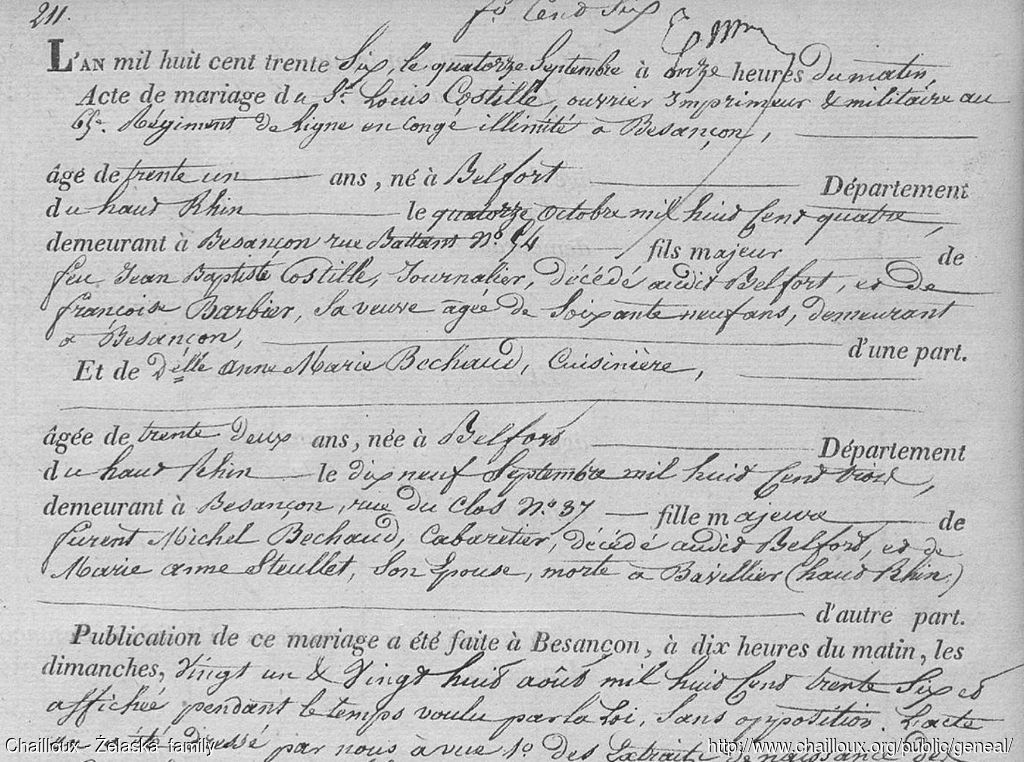 211.
fo. Cent Six
L'AN mil huit cent trente Six, le quatorze Septembre à onze heures du matin,
Acte de mariage du Sr. Louis Costille, ouvrier Imprimeur & militaire au
65e. Régiment de Ligne en congé illimité à Besançon,
âgé de trente un ans, né à Belfort Département
du haut Rhin le quatorze octobre mil huit Cent quatre,
demeurant à Besançon rue Battant No. 54 fils majeur de
feu Jean Baptiste Costille, Journalier, décédé audit Belfort, et de
françoise Barbier, sa veuve agée de Soixante neuf ans, demeurant
à Besançon, d'une part.
Et de Delle anne Marie Bechaud, Cuisinière,
âgée de trente deux ans, née à Belfort Département
du haut Rhin le dix neuf Septembre mil huit Cent trois,
demeurant à Besançon, rue du Clos No. 37 fille majeure de
furent Michel Bechaud, Cabaretier, décédé audit Belfort, et de
Marie anne Steullet, son Epouse, morte à Bavillier (haut Rhin.)
d'autre part.
Publication de ce mariage a été faite à Besançon, à dix heures du matin, les
dimanches, Vingt un & Vingt huit août mil huit Cent trente Six et
affichée pendant le temps voulu par la Loi, Sans opposition. L'acte
dressé par nous à vue 1o. des Extraits de naissance des
Chailloux - Zelaska family
http://www.chailloux.org/public/geneal/